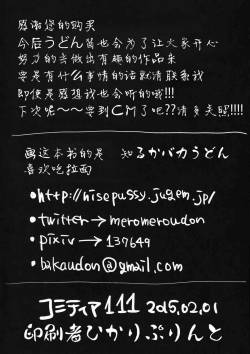 感谢您的购买
今后うどん酱也会为了让大家开心
努力的去做出有趣的作品来
要是有什么事情的话就请联系我
即使是感想我也会听的哦!!!
下次呢～～要到CM了吧??请多关照!!!!
画这本书的是 知るかバカうどん
喜欢吃拉面
•http://nisepussy.jugem.jp/
•twitter→meromeroudon
•pixiv→137649
•bakaudon@gmail.com
コミティア111 2015.02.01
印刷者ひかりぷりんと